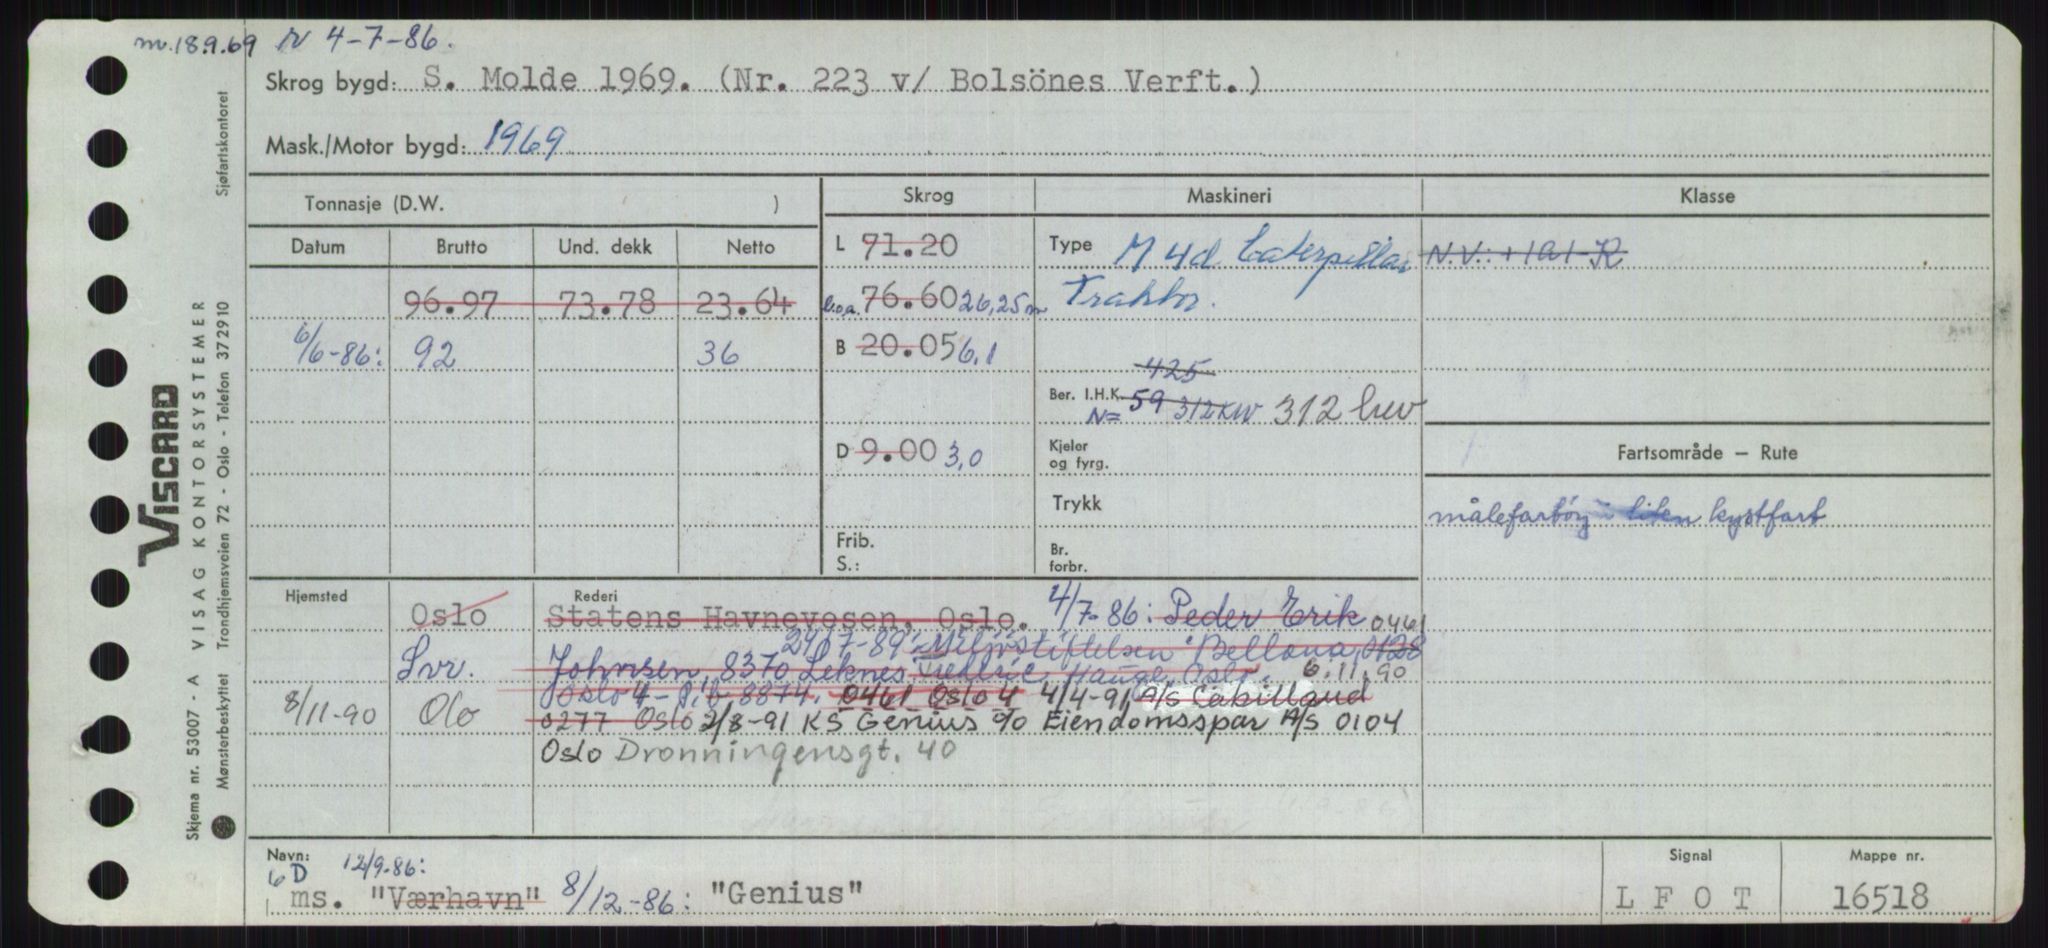 m. 18.9.69 N 4-7-86.
Skrog bygd: S. Molde 1969. (Nr. 223 v/ Bolsönes Verft.)
Mask./Motor bygd: 1969
Tonnasje (D.W. )
Skrog
Maskineri
Klasse
Datum Brutto Und. dekk Netto
L 71.20
Type M 4d Caterpillar
N.V.: +1A1-K
96.97 73.78 23.64
l.o.a. 76.60 26,25 m
Traktor.
6/6-86: 92 36
B 20.05 6,1
425
Ber. I.H.K. 59 312 KW 312 kw
N=
D 9.00 3,0
Kjeler
og fyrg.
Fartsområde – Rute
Trykk
målefartøy i liten kystfart
Frib.
S.:
Br.
forbr.
Hjemsted
Rederi
Oslo Statens Havnevesen, Oslo. 4/7-86: Peder Erik 0461
24/7-89: Miljøstiftelsen Bellona,
Svr. Johnsen, 8370 Leknes. Fredric Hauge, Oslo. 6.11.90
Oslo 4 - P.b. 8874. 0461 Oslo 4 4/4-91, A/S Cabilland
8/11-90 Olo 0277 Oslo 2/8-91 KS Genius c/o Eiendomsspar A/S 0104
Oslo Dronningensgt. 40
Navn: 12/9.86:
6 D
ms. "Værhavn" 8/12-86: "Genius"
Signal
L F O T
Mappe nr.
16518
Viscard
Skjema nr. 53007 - A VISAG KONTORSYSTEMER
Mønsterbeskyttet Trondhjemsveien 72 - Oslo - Telefon 372910
Sjøfartskontoret